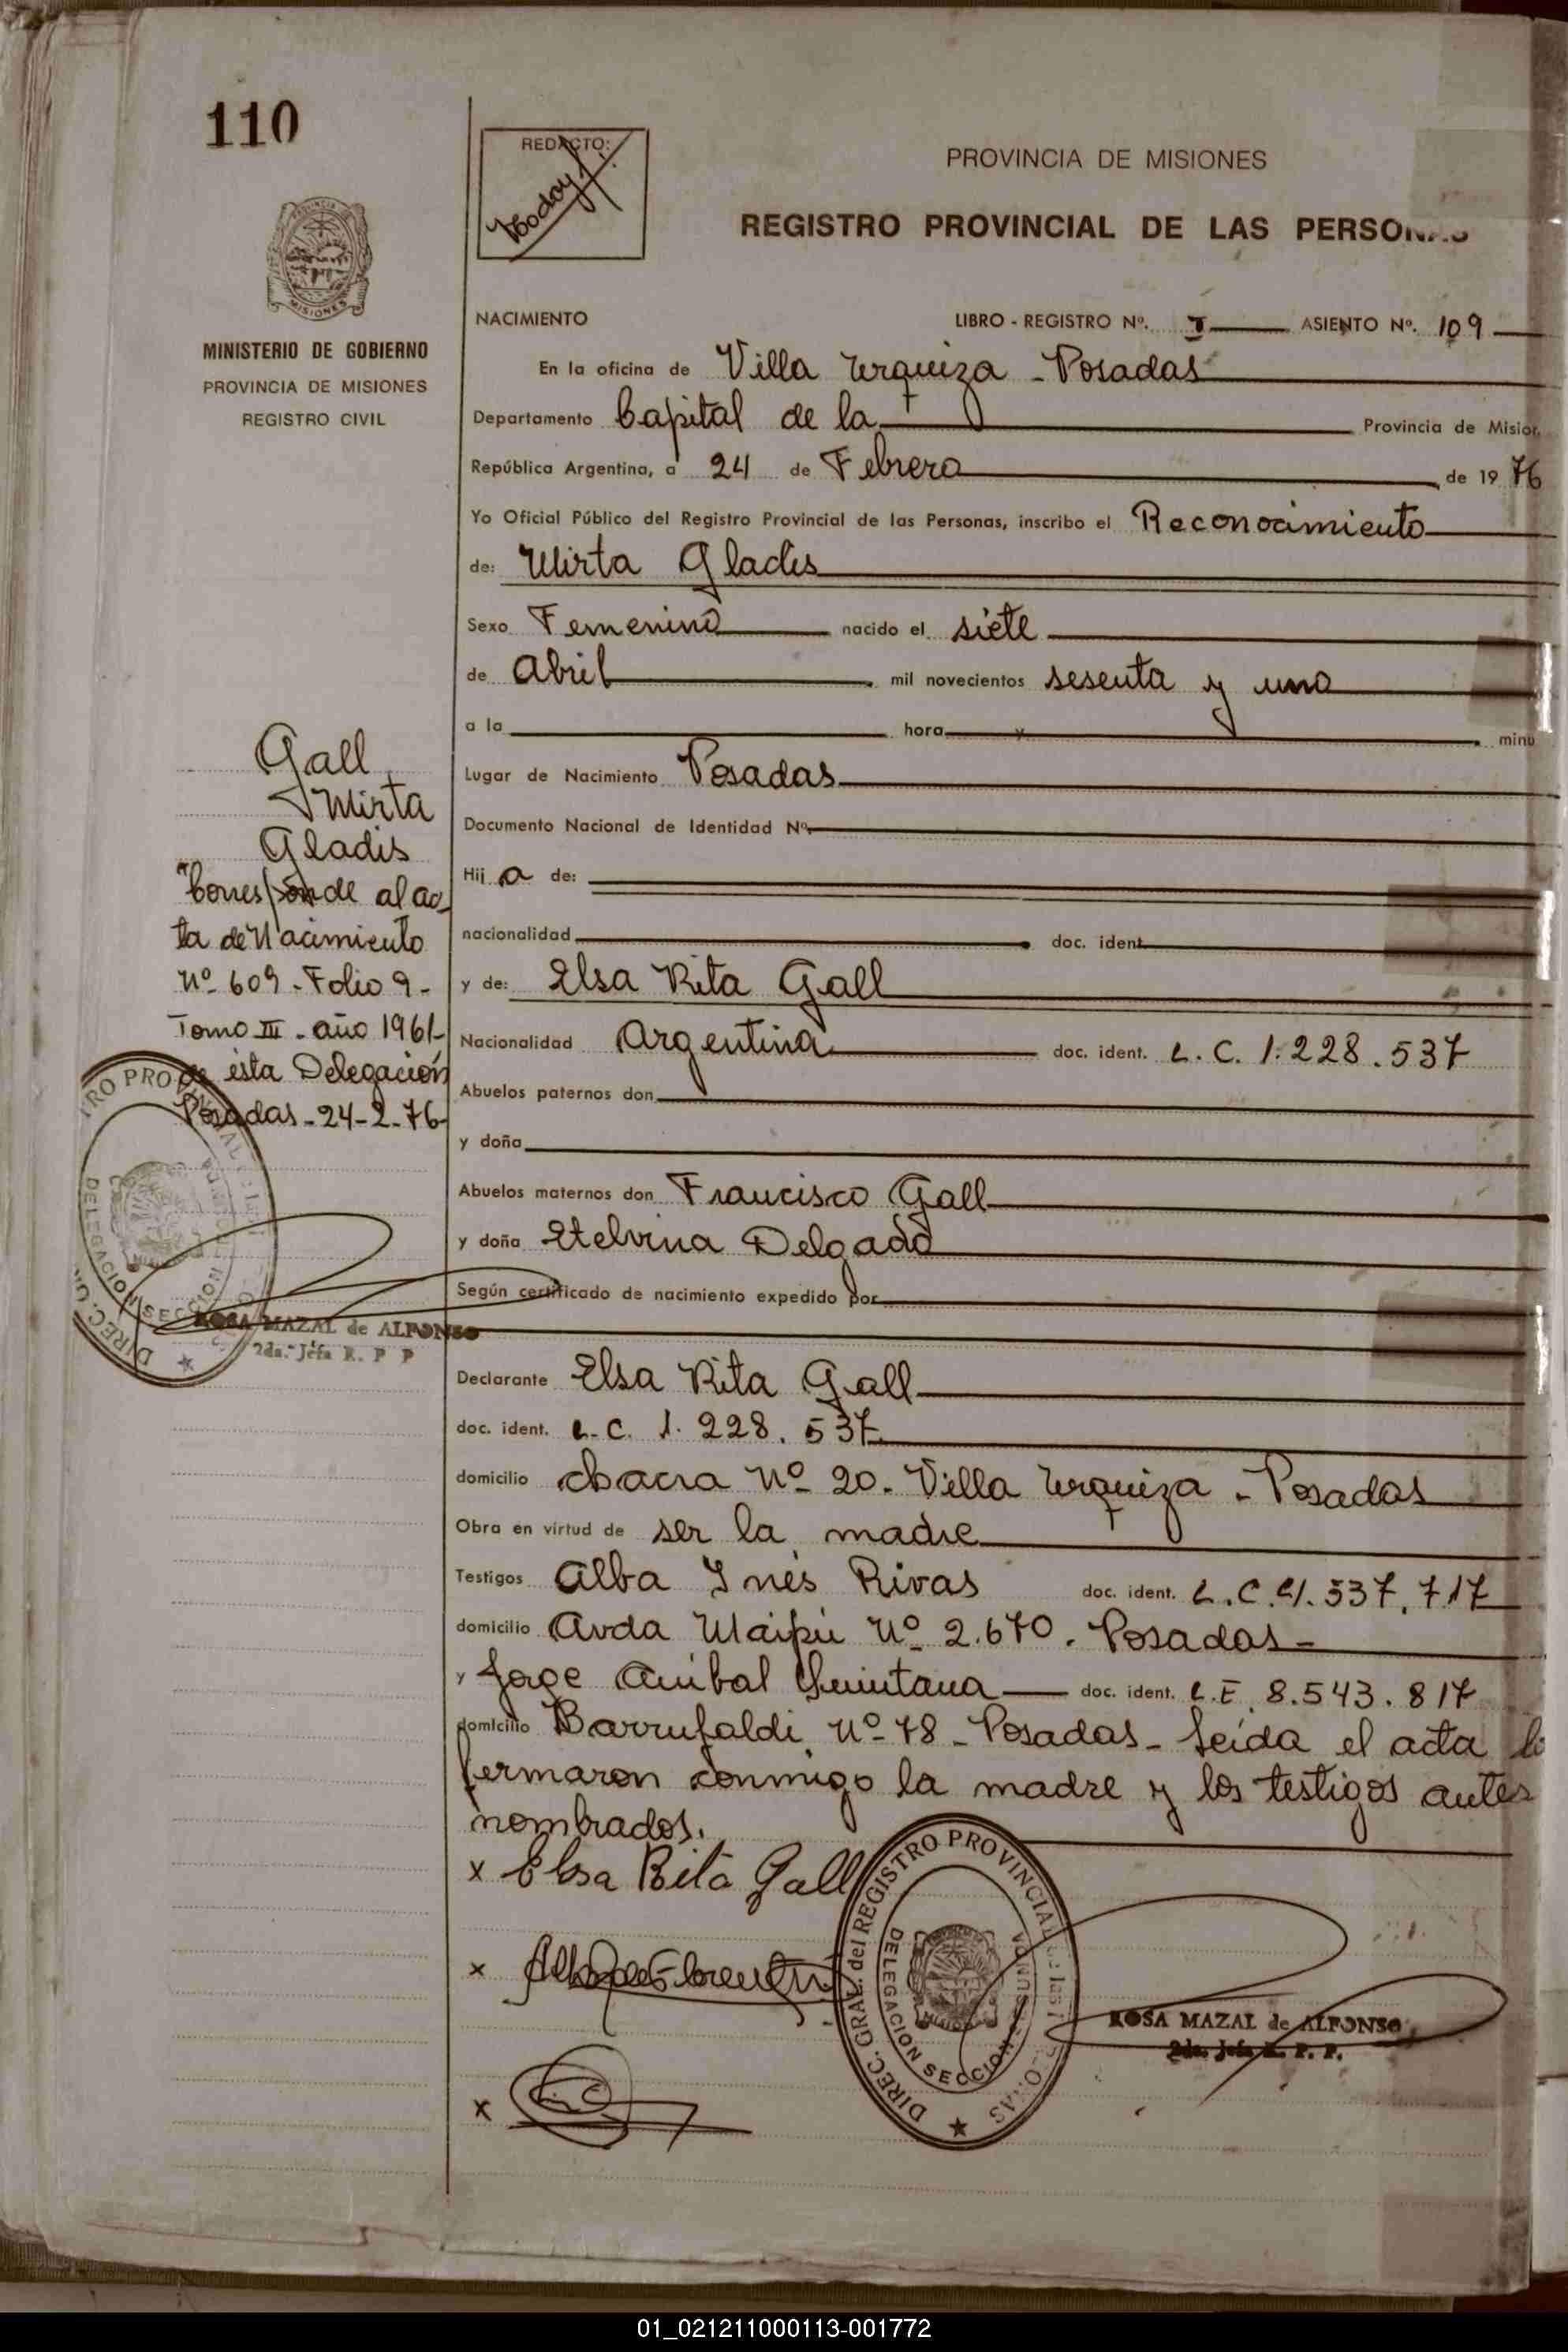 110
REDACTO:
Godoy
PROVINCIA DE MISIONES
REGISTRO PROVINCIAL DE LAS PERSONAS
MINISTERIO DE GOBIERNO
PROVINCIA DE MISIONES
REGISTRO CIVIL
NACIMIENTO LIBRO - REGISTRO Nº. I ASIENTO Nº. 109
En la oficina de Villa Urquiza - Posadas
Departamento Capital de la Provincia de Mision
República Argentina, a 24 de Febrero de 1976
Yo Oficial Público del Registro Provincial de las Personas, inscribo el Reconocimiento
de: Mirta Gladis
Sexo Femenino nacido el siete
de Abril mil novecientos sesenta y uno
a la hora y minu
Lugar de Nacimiento Posadas
Documento Nacional de Identidad Nº
Hij a de:
nacionalidad doc. ident.
y de: Elsa Rita Gall
Nacionalidad Argentina doc. ident. L. C. 1.228.537
Abuelos paternos don
y doña
Abuelos maternos don Francisco Gall
y doña Etelvina Delgado
Según certificado de nacimiento expedido por
Declarante Elsa Rita Gall
doc. ident. L. C. 1.228.537
domicilio chacra Nº 20. Villa Urquiza - Posadas
Obra en virtud de ser la madre
Testigos Alba Inés Rivas doc. ident. L. C. 4.537.717
domicilio Avda Maipú Nº 2.670. Posadas -
y Jorge Anibal Quintana doc. ident. L.E. 8.543.817
domicilio Barrufaldi Nº 78 - Posadas - Leída el acta la
fermaron conmigo la madre y los testigos antes
nombrados.
x Elsa Rita Gall
x
x
DIREC. GRAL. del REGISTRO PROVINCIAL de las PERSONAS
DELEGACION SECCION
ROSA MAZAL de ALFONSO
2da. Jefa R. P. P.
Gall
Mirta
Gladis
"Corresponde al ac-
ta de Nacimiento
Nº 609 - Folio 9 -
Tomo III - año 1961-
de ésta Delegación
Posadas - 24-2-76-
ROSA MAZAL de ALFONSO
2da. Jefa R. P P
01_021211000113-001772